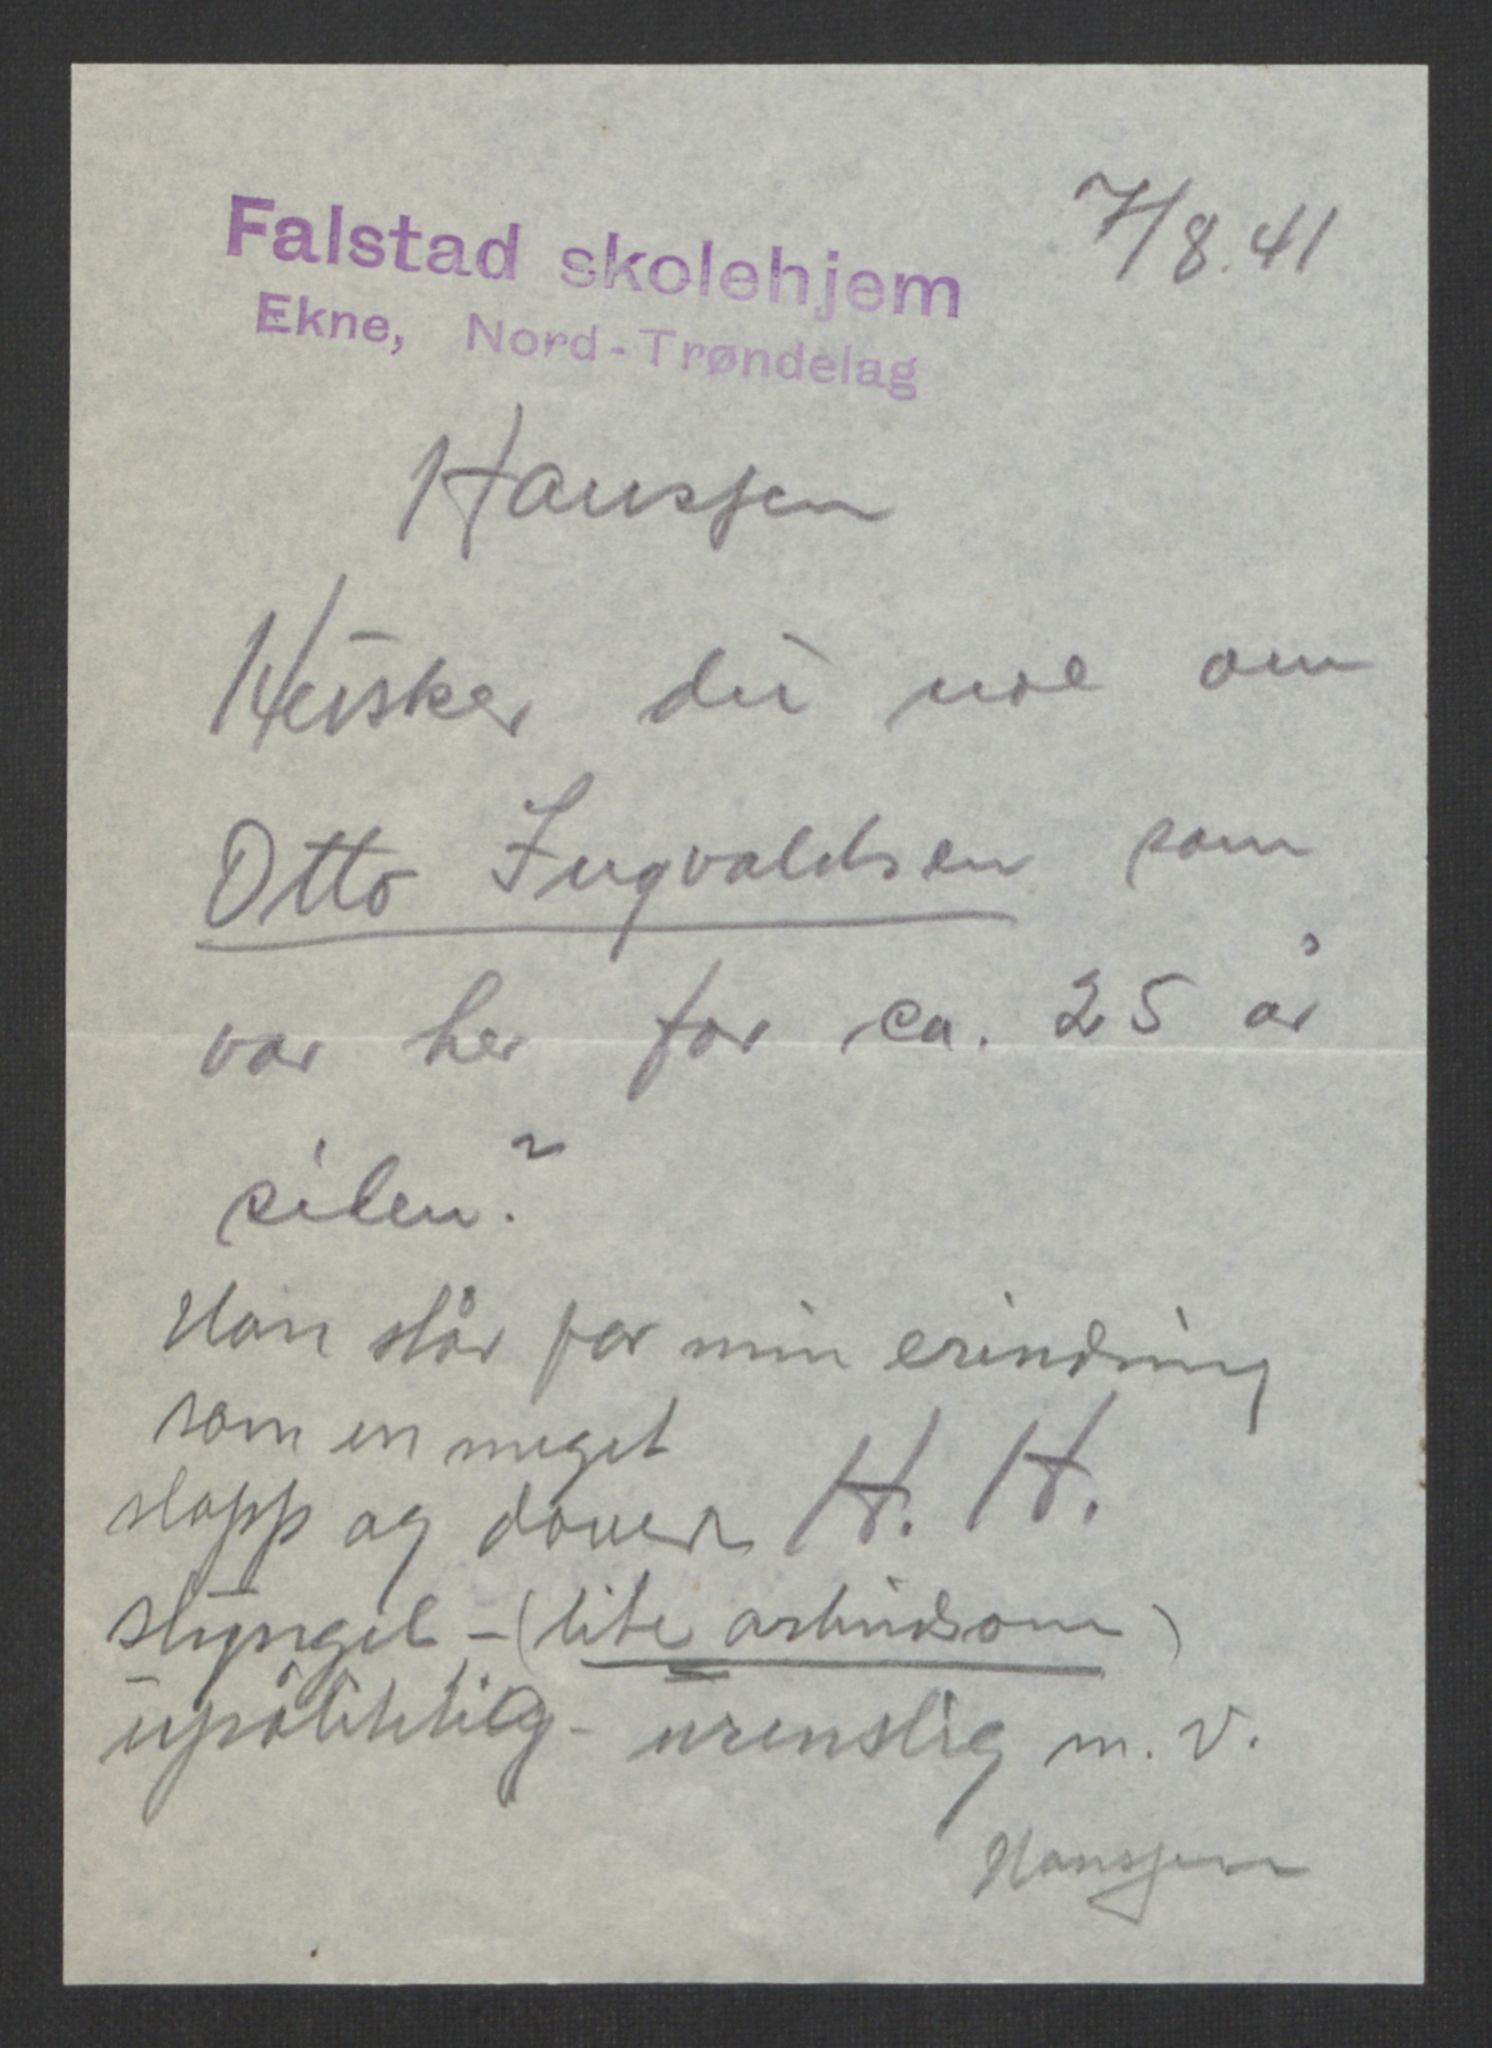 Falstad skolehjem
7/8.41
Ekne, Nord-Trøndelag
Hanssen
Husker du noe om
Otto Ingvaldsen som
var her for ca. 25 år
siden?
Han står for min erindring
som en meget
slapp og doven H. H.
slyngel - (lite arbeidsom)
upålitelig - urenslig m. v.
Hanssen